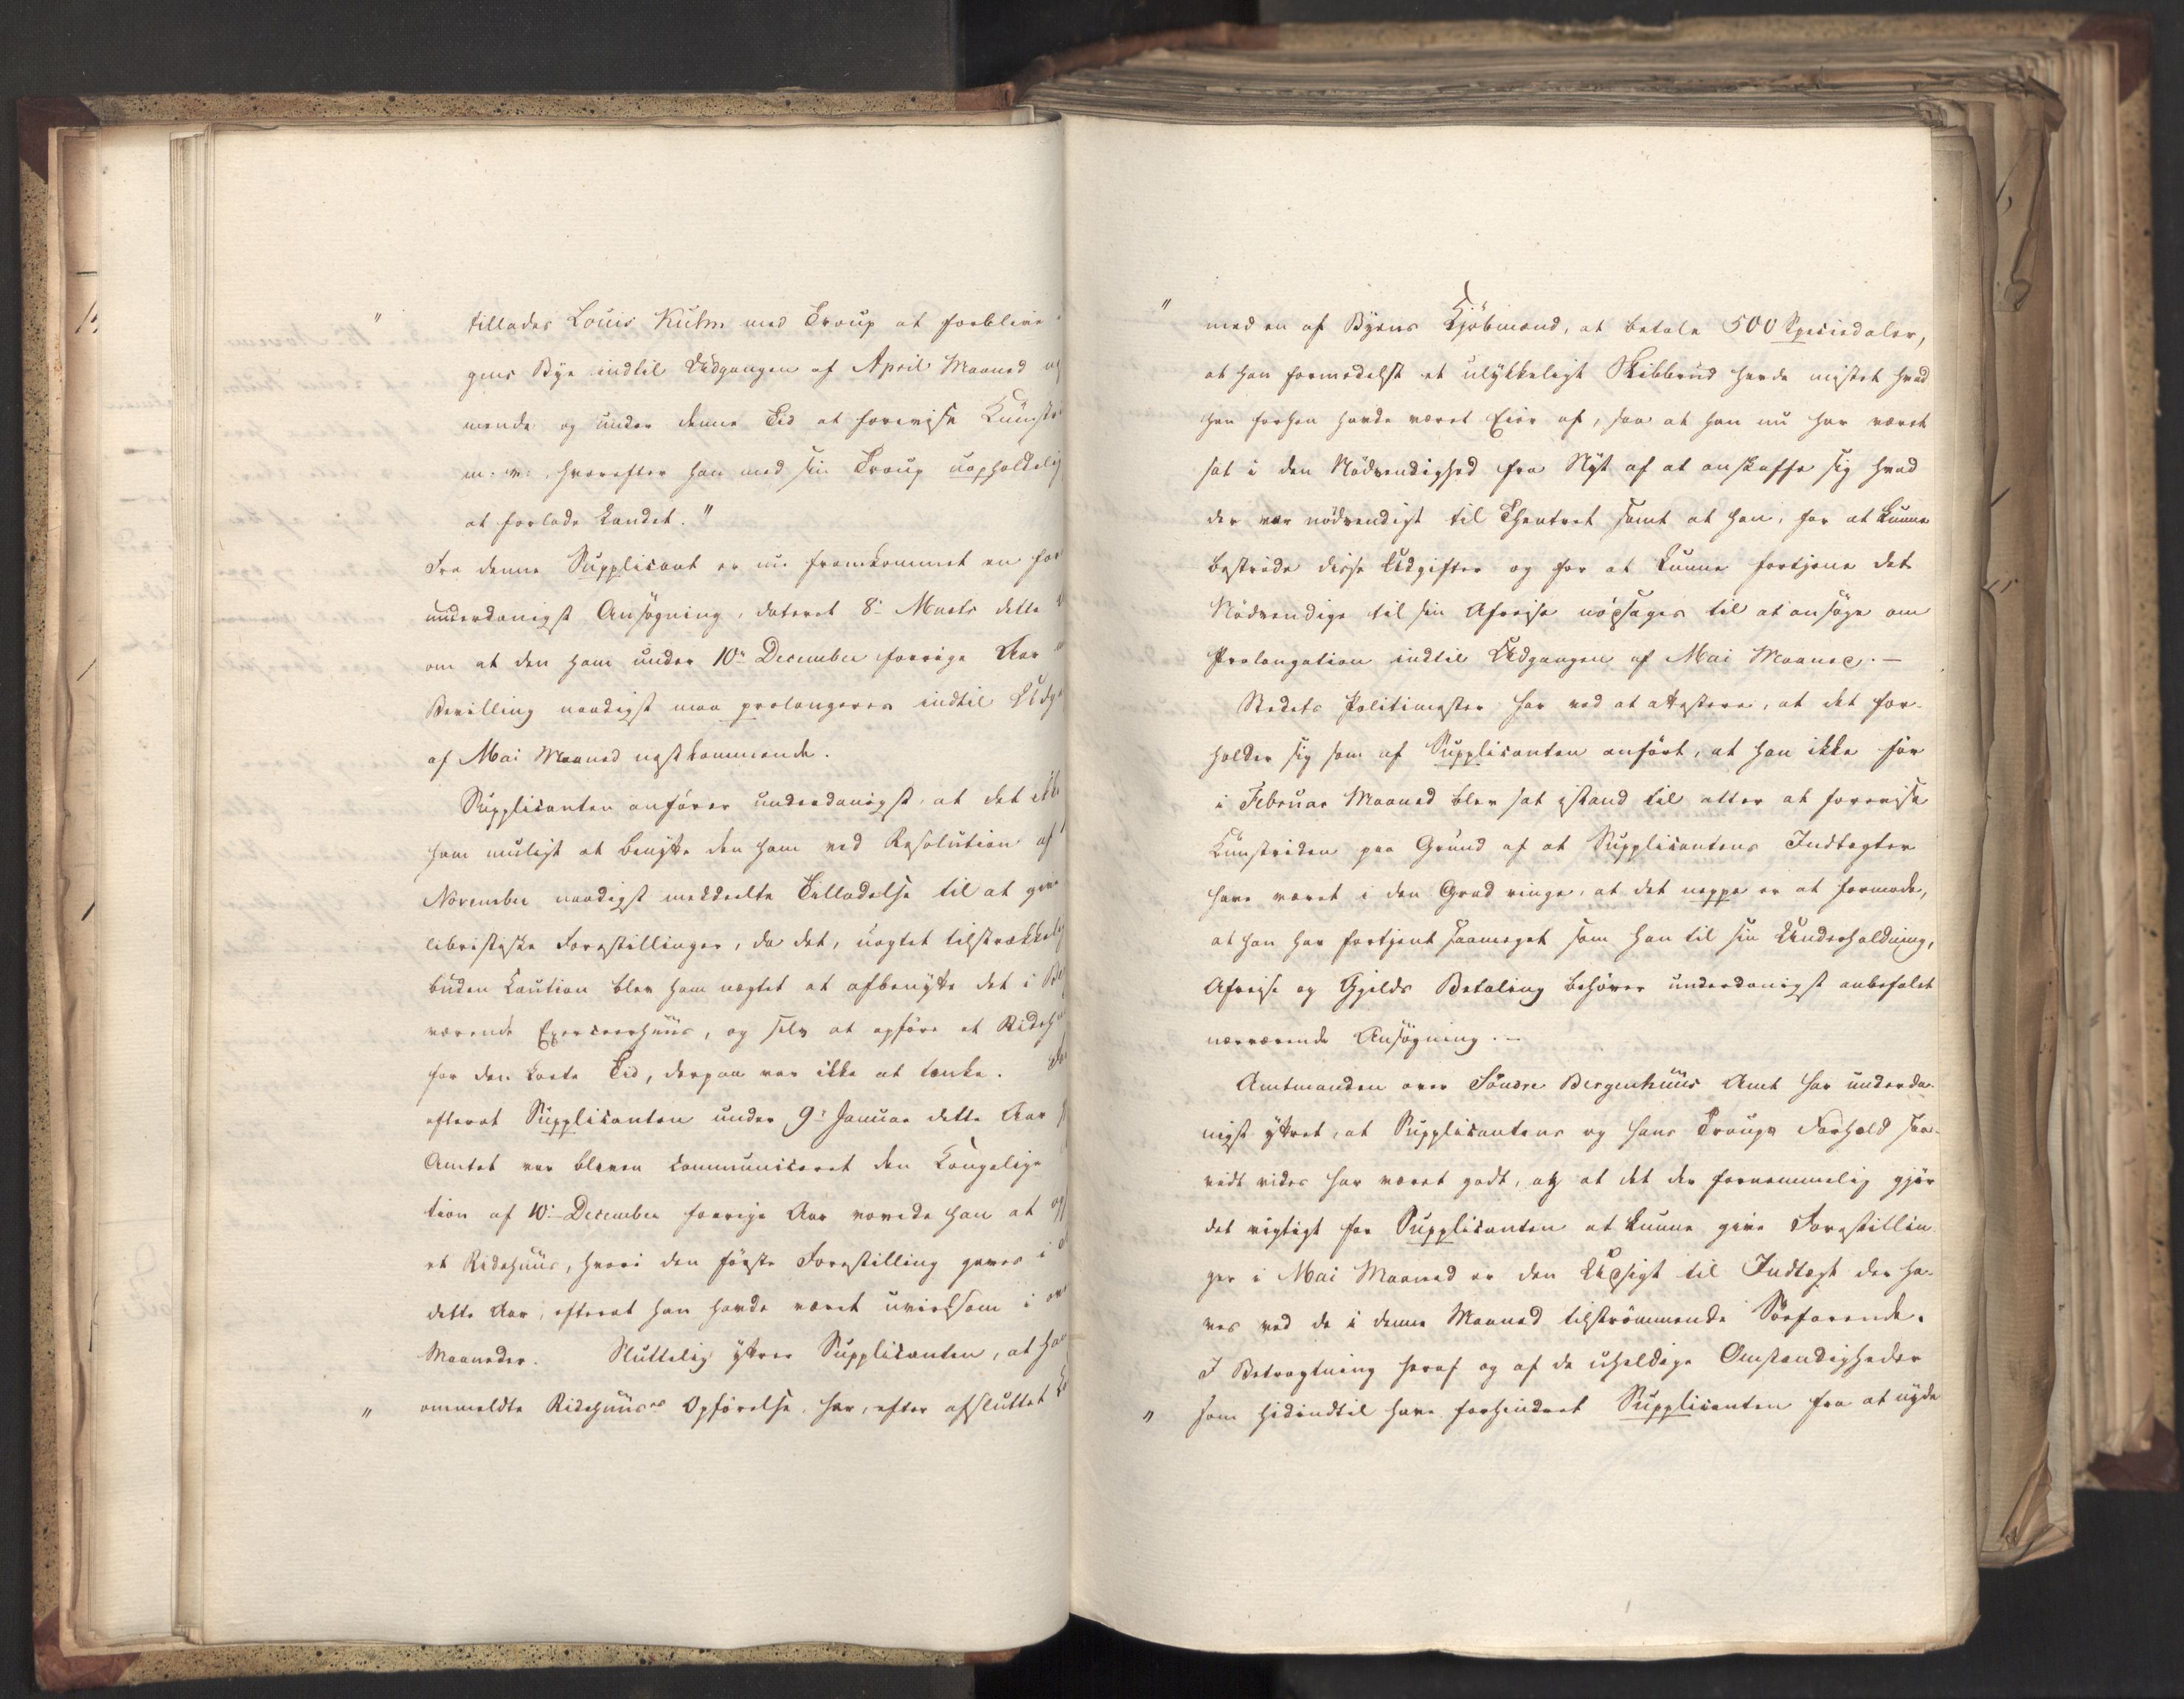 " tillades Louis Kuhn med Troup at forblive
gens Bye indtil Udgangen af April Maaned
mende og under denne Tid at forevise Kunst
m: v:, hvorefter han med sin Troup uopholdelig
at forlade Landet."
Fra denne Supplicant er nu fremkommet en
underdanigst Ansøgning, dateret 8de Marts dette
om at den ham under 10de December forrige Aar
Bevilling naadigst maa prolongeres indtil Udg
af Mai Maaned næstkommende.
Supplicanten anfører underdanigst, at det
ham muligt at benytte den ham ved Resolution af
November naadigst meddeelte Tilladelse til at give
libristiske Forestillinger, da det, uagtet tilstrækkelig
buden Caution blev ham nægtet at afbenytte det i
værende Exerceerhuus, og selv at opføre et Rideh
for den korte Tid, derpaa var ikke at tænke.
efterat Supplicanten under 9de Januar dette Aar
Amtet var bleven communiceret den Kongelige
tion af 10de December forrige Aar vovede han at
et Ridehuus, hvori den første Forestilling gaves i
dette Aar, efterat han havde været uvirksom i
Maaneder. Sluttelig yttrer Supplicanten, at
" ommeldte Ridehuus's Opførelse har, efter afsluttet
" med en af Byens Kjøbmænd, at betale 500 Speciedaler,
at han formedelst et ulykkeligt Skibbrud havde mistet hvad
han forhen havde været Eier af, saa at han nu har været
sat i den Nødvendighed fra Nyt af at anskaffe sig hvad
der var nødvendigt til Theatret samt at han, for at kunne
bestride disse Udgifter og for at kunne fortjene det
Nødvendige til sin Afreise nødsages til at ansøge om
Prolongation indtil Udgangen af Mai Maaned. —
Stedets Politimester har ved at attestere, at det for-
holder sig som af Supplicanten anført, at han ikke før
i Februar Maaned blev sat istand til atter at forevise
Kunstriden paa Grund af at Supplicantens Indtægter
have været i den Grad ringe, at det neppe er at formode,
at han har fortjent saameget som han til sin Underholdning,
Afreise og Gjelds Betaling behøver underdanigst anbefalet
nærværende Ansøgning. —
Amtmanden over Søndre Bergenhuus Amt har underda-
nigst yttret, at Supplicantens og hans Troups Forhold saa-
vidt vides har været godt, og at det der fornemmelig gjør
det vigtigt for Supplicanten at kunne give Forestillin
ger i Mai Maaned er den Udsigt til Indtægt der ha-
ves ved de i denne Maaned tilstrømmende Søefarende.
I Betragtning heraf og af de uheldige Omstændigheder
" som hidindtil have forhindret Supplicanten fra at nyde